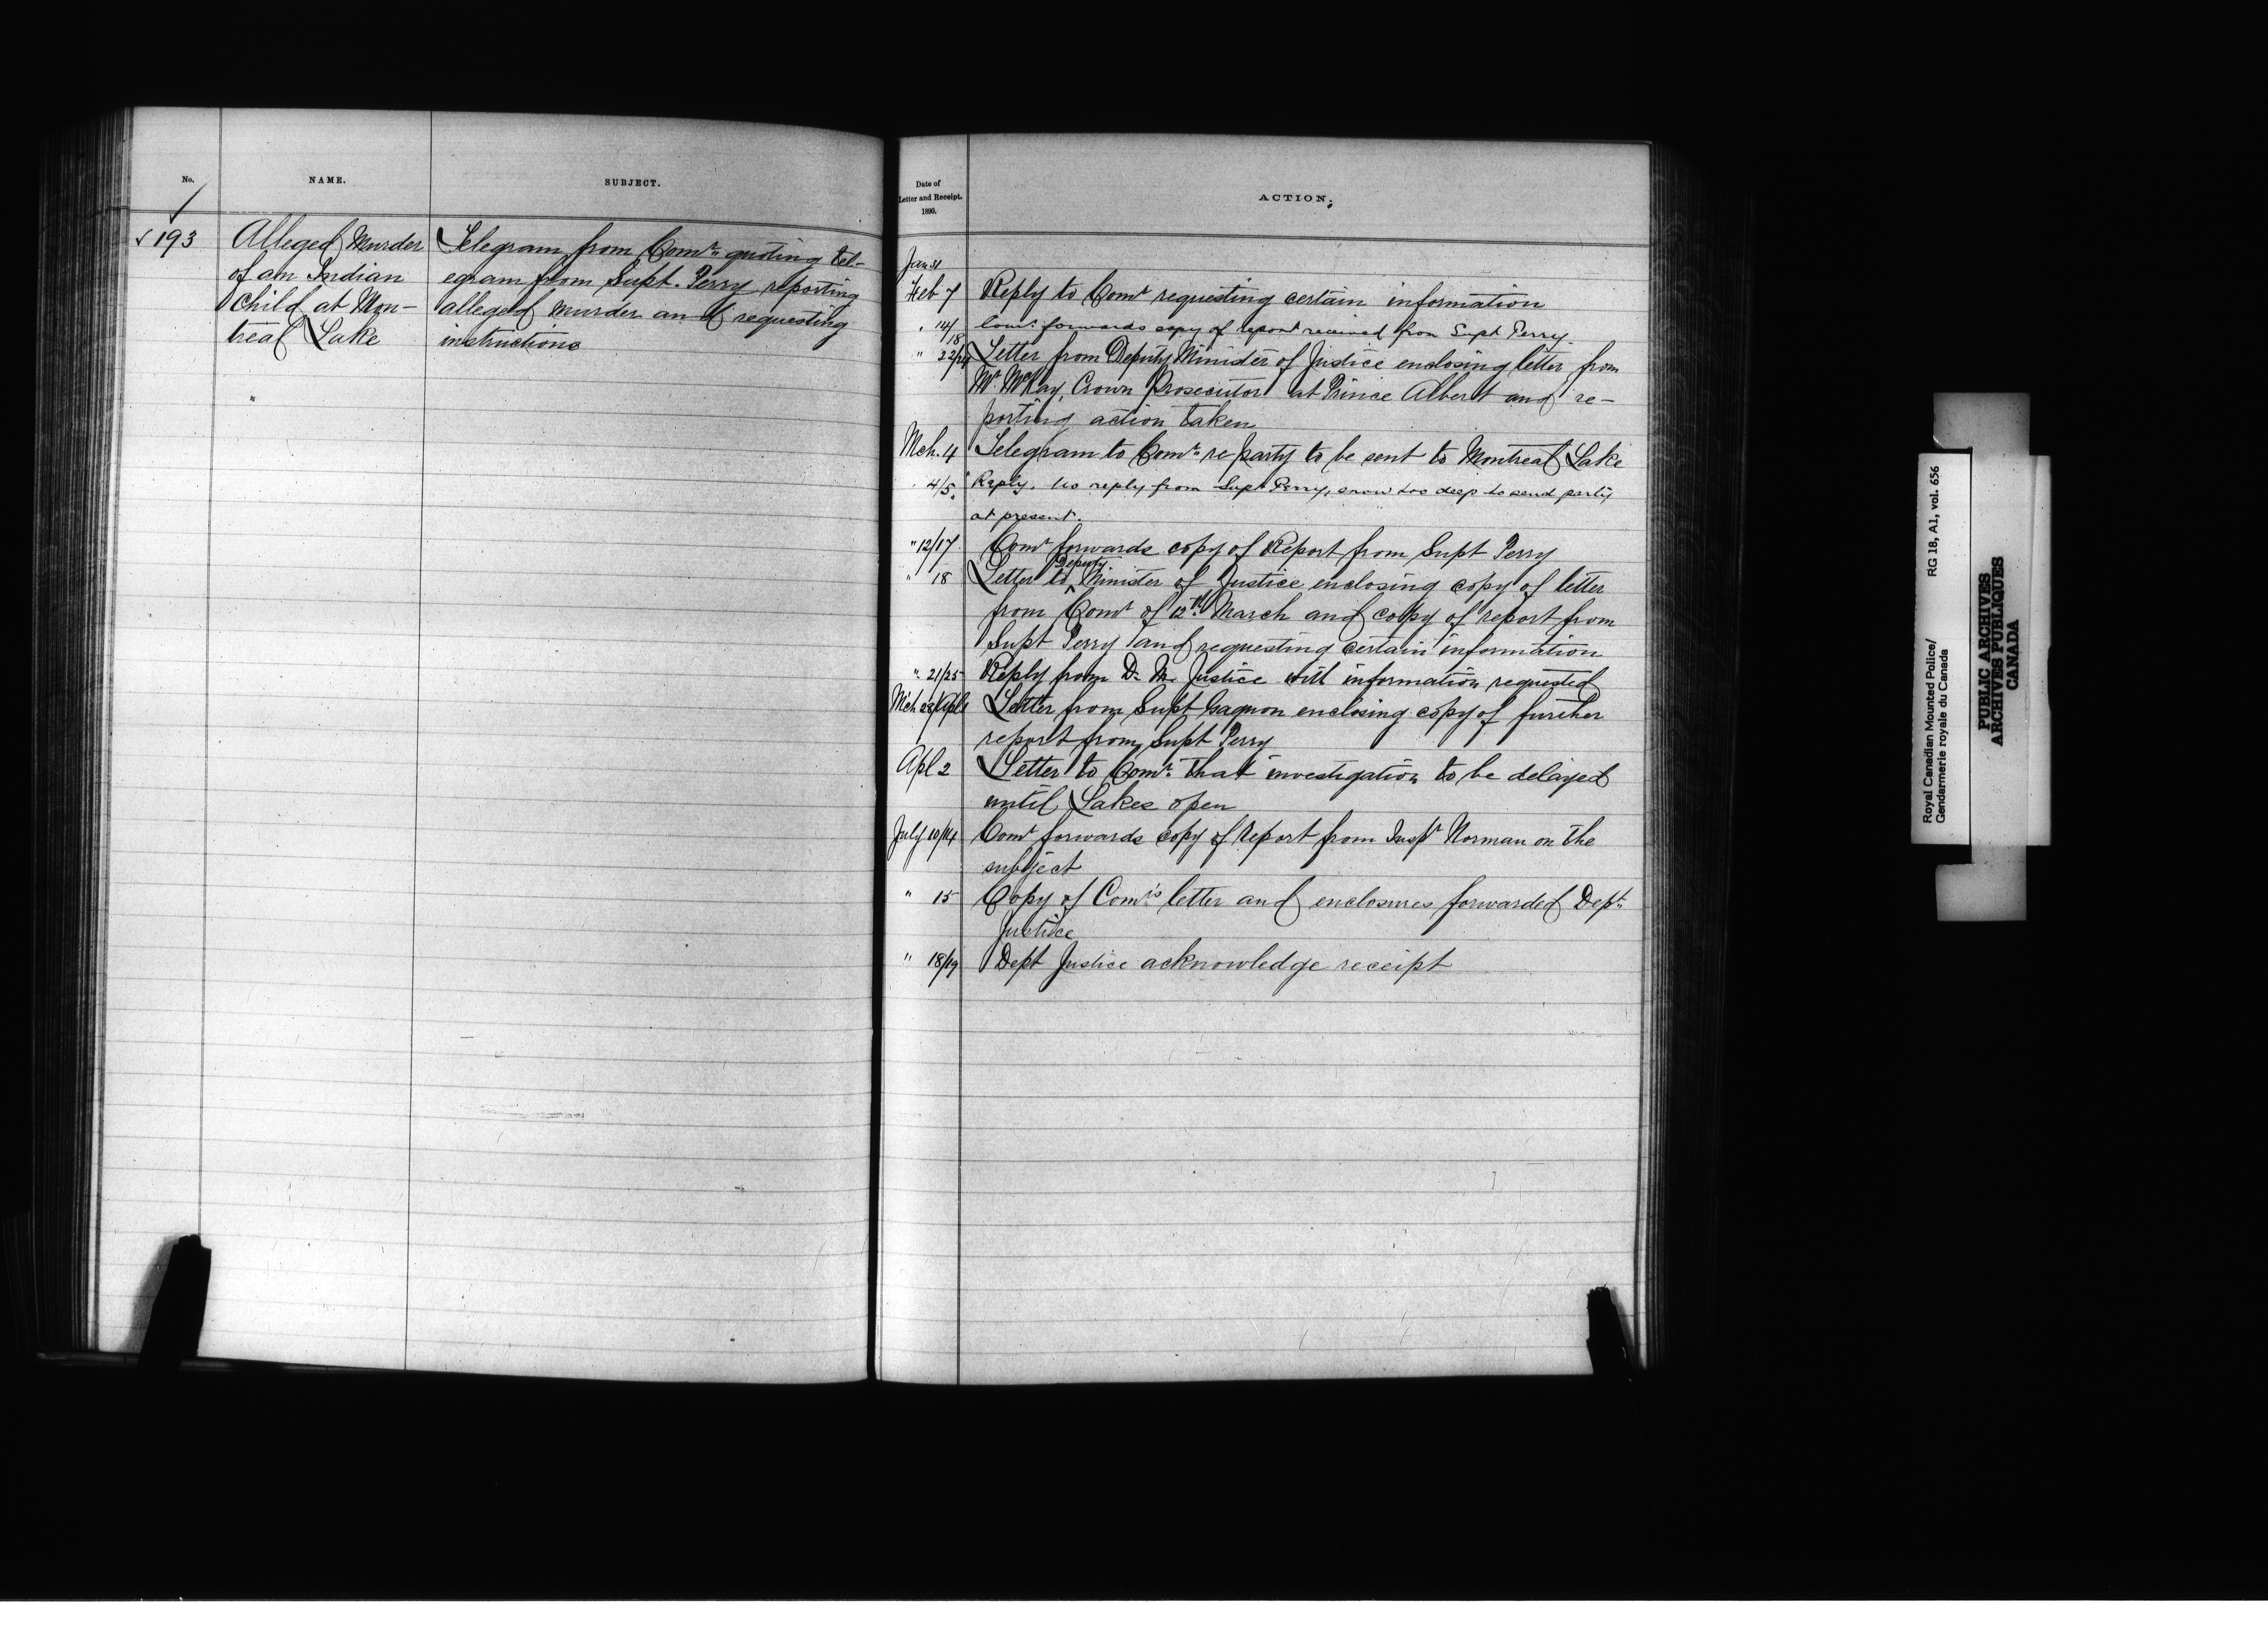 No.
NAME.
SUBJECT.
√ 193
Alleged Murder
of an Indian
Child at Mon-
treal Lake
Telegram from Comr. quoting tel-
egram from Supt. Perry reporting
alleged murder and requesting
instructions
Date of
Letter and Receipt.
1890.
ACTION.
Jan 31
Feb 7 Reply to Comr requesting certain information
" 14/18 Comr. forwards copy of report received from Supt Perry.
" 22/24 Letter from Deputy Minister of Justice enclosing letter from
Mr. McKay, Crown Prosecutor at Prince Albert and re-
porting action taken
Mch. 4 Telegram to Comr. re party to be sent to Montreal Lake
" 4/5. Reply. No reply from Supt Perry, snow too deep to send party
at present.
" 12/17 Comr forwards copy of Report from Supt Perry
" 18 Letter to Deputy Minister of Justice enclosing copy of letter
from Comr of 12th March and copy of report from
Supt Perry and requesting certain information
" 21/25 Reply from D. M. Justice with information requested
Mch 28/Apl 1 Letter from Supt Gagnon enclosing copy of further
report from Supt Perry
Apl 2 Letter to Comr. that investigation to be delayed
until Lakes open
July 10/14 Comr forwards copy of report from Inspr Norman on the
subject
" 15 Copy of Comr's letter and enclosures forwarded Dept.
Justice
" 18/19 Dept Justice acknowledge receipt
Royal Canadian Mounted Police/ RG 18, A1, vol. 656
Gendarmerie royale du Canada
PUBLIC ARCHIVES
ARCHIVES PUBLIQUES
CANADA